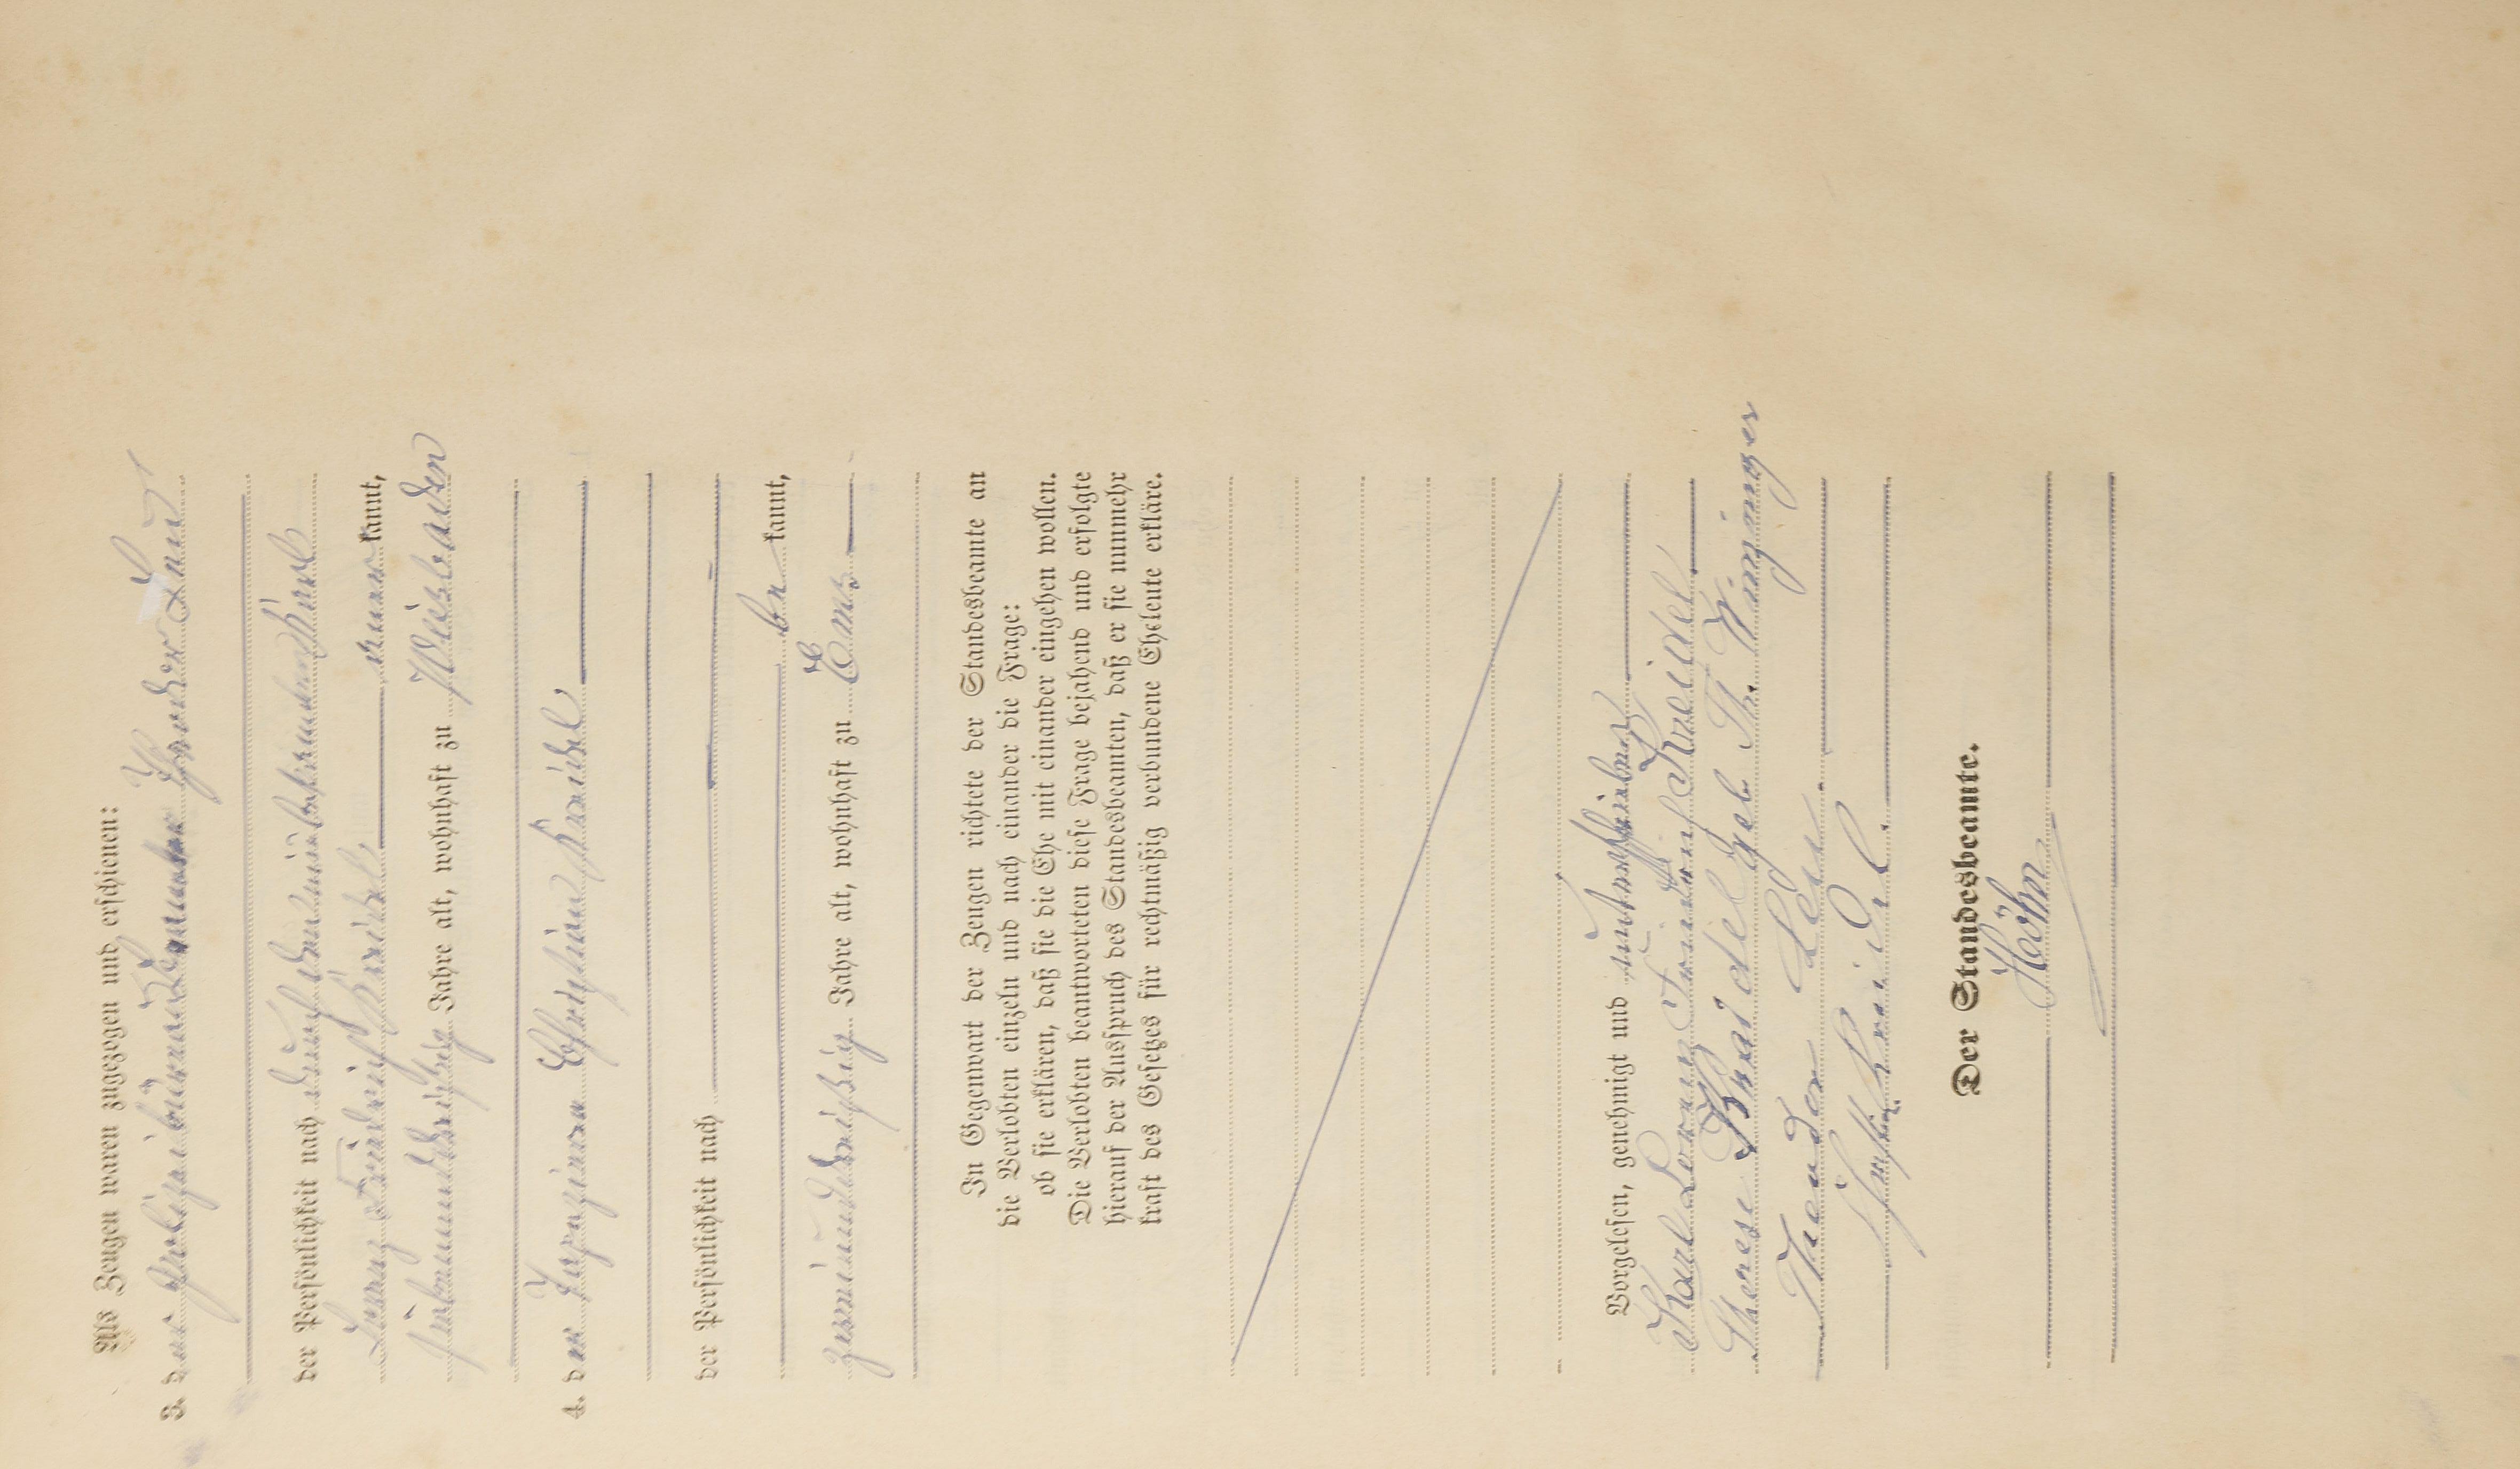 Als Zeugen waren zugezogen und erschienen:
3. der Theodor
der Persönlichkeit nach durch den
Lorenz Friedrich Kreidel kannt,
siebenunddreißig Jahre alt, wohnhaft zu Wiesbaden
4. der Christian Kreidel
der Persönlichkeit nach
be kannt,
zweiunddreißig Jahre alt, wohnhaft zu Ems
In Gegenwart der Zeugen richtete der Standesbeamte an
die Verlobten einzeln und nach einander die Frage:
ob sie erklären, daß sie die Ehe mit einander eingehen wollen.
Die Verlobten beantworteten diese Frage bejahend und erfolgte
hierauf der Ausspruch des Standesbeamten, daß er sie nunmehr
kraft des Gesetzes für rechtmäßig verbundene Eheleute erkläre.
Vorgelesen, genehmigt und unterschrieben
Karl Lorenz Friedrich Kreidel
Therese Kreidel geb. Th.
Theodor
Christian Kreidel.
Der Standesbeamte.
Höhn